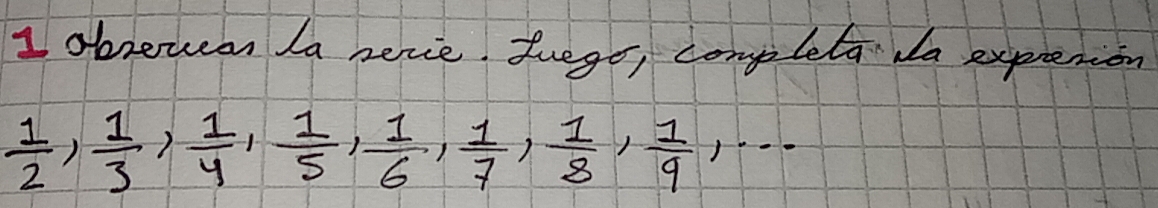 1 observean la serie. Luego, completa la expresión
1/2, 1/3, 1/4, 1/5, 1/6, 1/7, 1/8, 1/9, ...